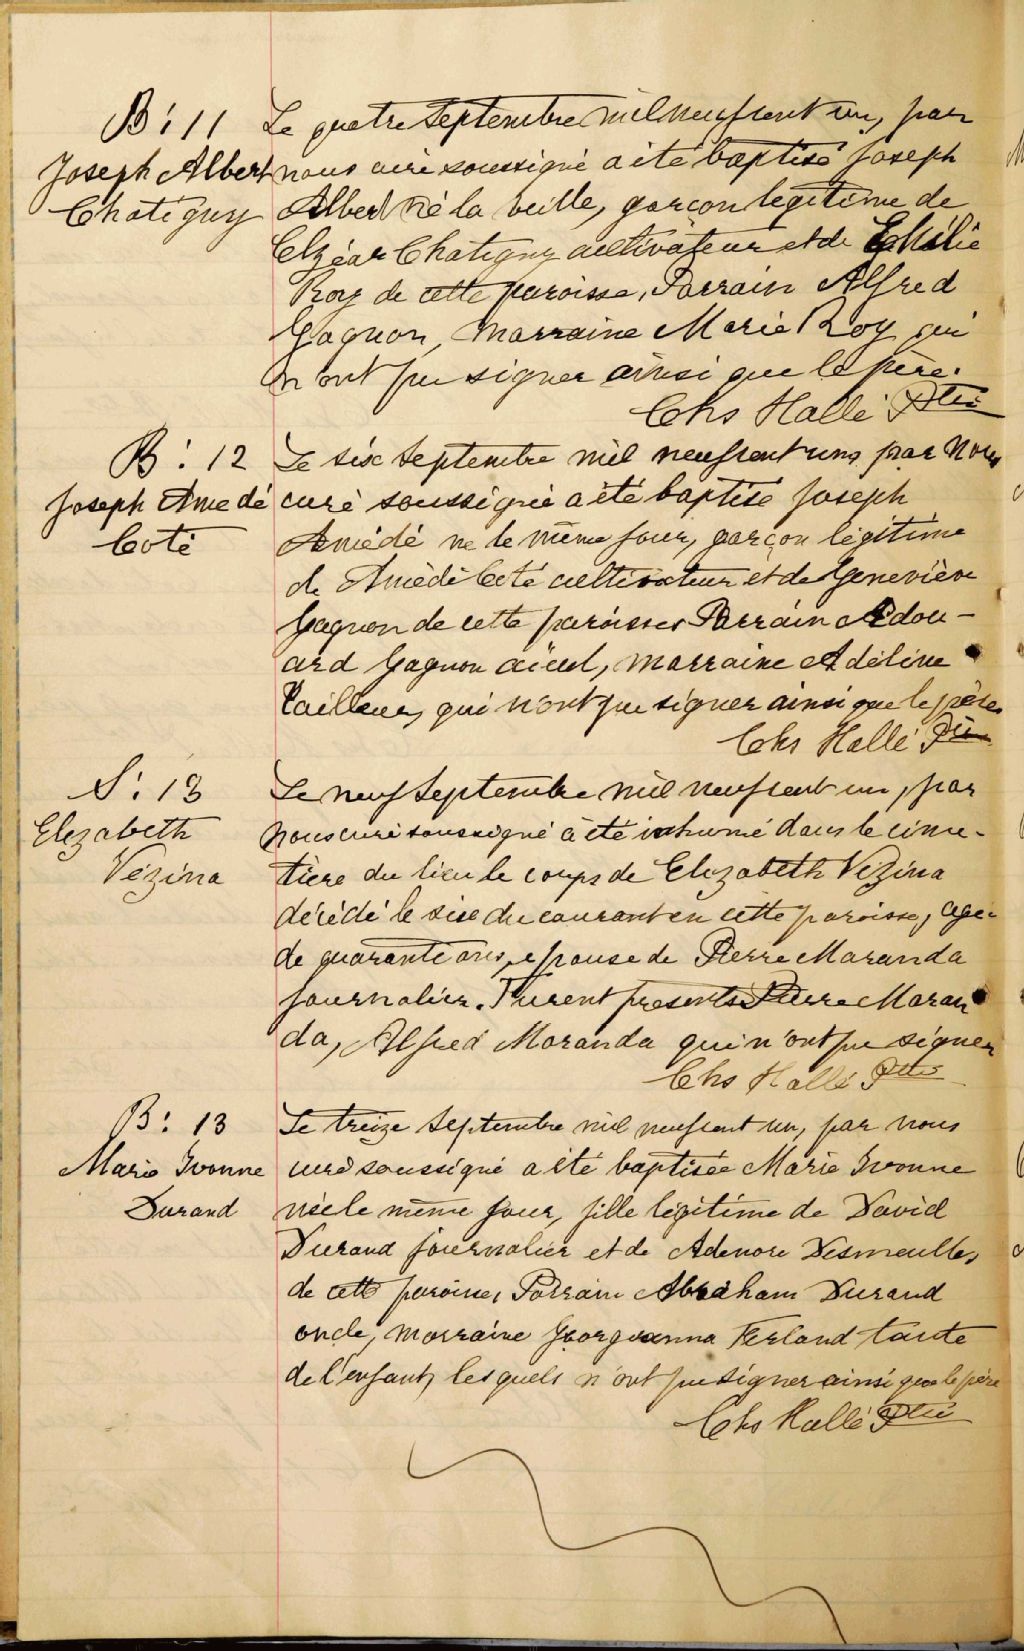 B: 11
Joseph Albert
Chatigny
Le quatre Septembre mil neuf cent un, par
nous curé soussigné a été baptisé Joseph
Albert né la veille, garçon légitime de
Elzéar Chatigny cultivateur et de
Roy de cette paroisse, Parrain Alfred
Gagnon, marraine Marie Roy qui
n'ont pu signer ainsi que le père.
Chs Hallé Ptre
B: 12
Joseph Amedé
Coté
Le six Septembre mil neuf cent un, par Nous
curé soussigné a été baptisé Joseph
Amédé né le même jour, garçon légitime
de Amédé Coté cultivateur et de Geneviève
Gagnon de cette paroisse, Parrain Edou-
ard Gagnon aïeul, marraine Adéline
Tailleur, qui n'ont pu signer ainsi que le père
Chs Hallé Ptre
S: 13
Elezabeth
Vézina
Le neuf Septembre mil neuf cent un, par
nous curé soussigné a été inhumé dans le cime-
tière du lieu le corps de Elezabeth Vézina
décédé le six du courant en cette paroisse, agée
de quarante ans, epouse de Pierre Maranda
journalier. Furent presents Pierre Maran
da, Alfred Maranda qui n'ont pu signer
Chs Hallé Ptre
B: 13
Marie Yvonne
Durand
Le treize Septembre mil neuf cent un, par nous
curé soussigné a été baptisée Marie Yvonne
née le même jour, fille légitime de David
Durand journalier et de Adenore Desmeules,
de cette paroisse, Parrain Abraham Durand
oncle, marraine Georgeanna Ferland tante
de l'enfant, lesquels n'ont pu signer ainsi que le père
Chs Hallé Ptre